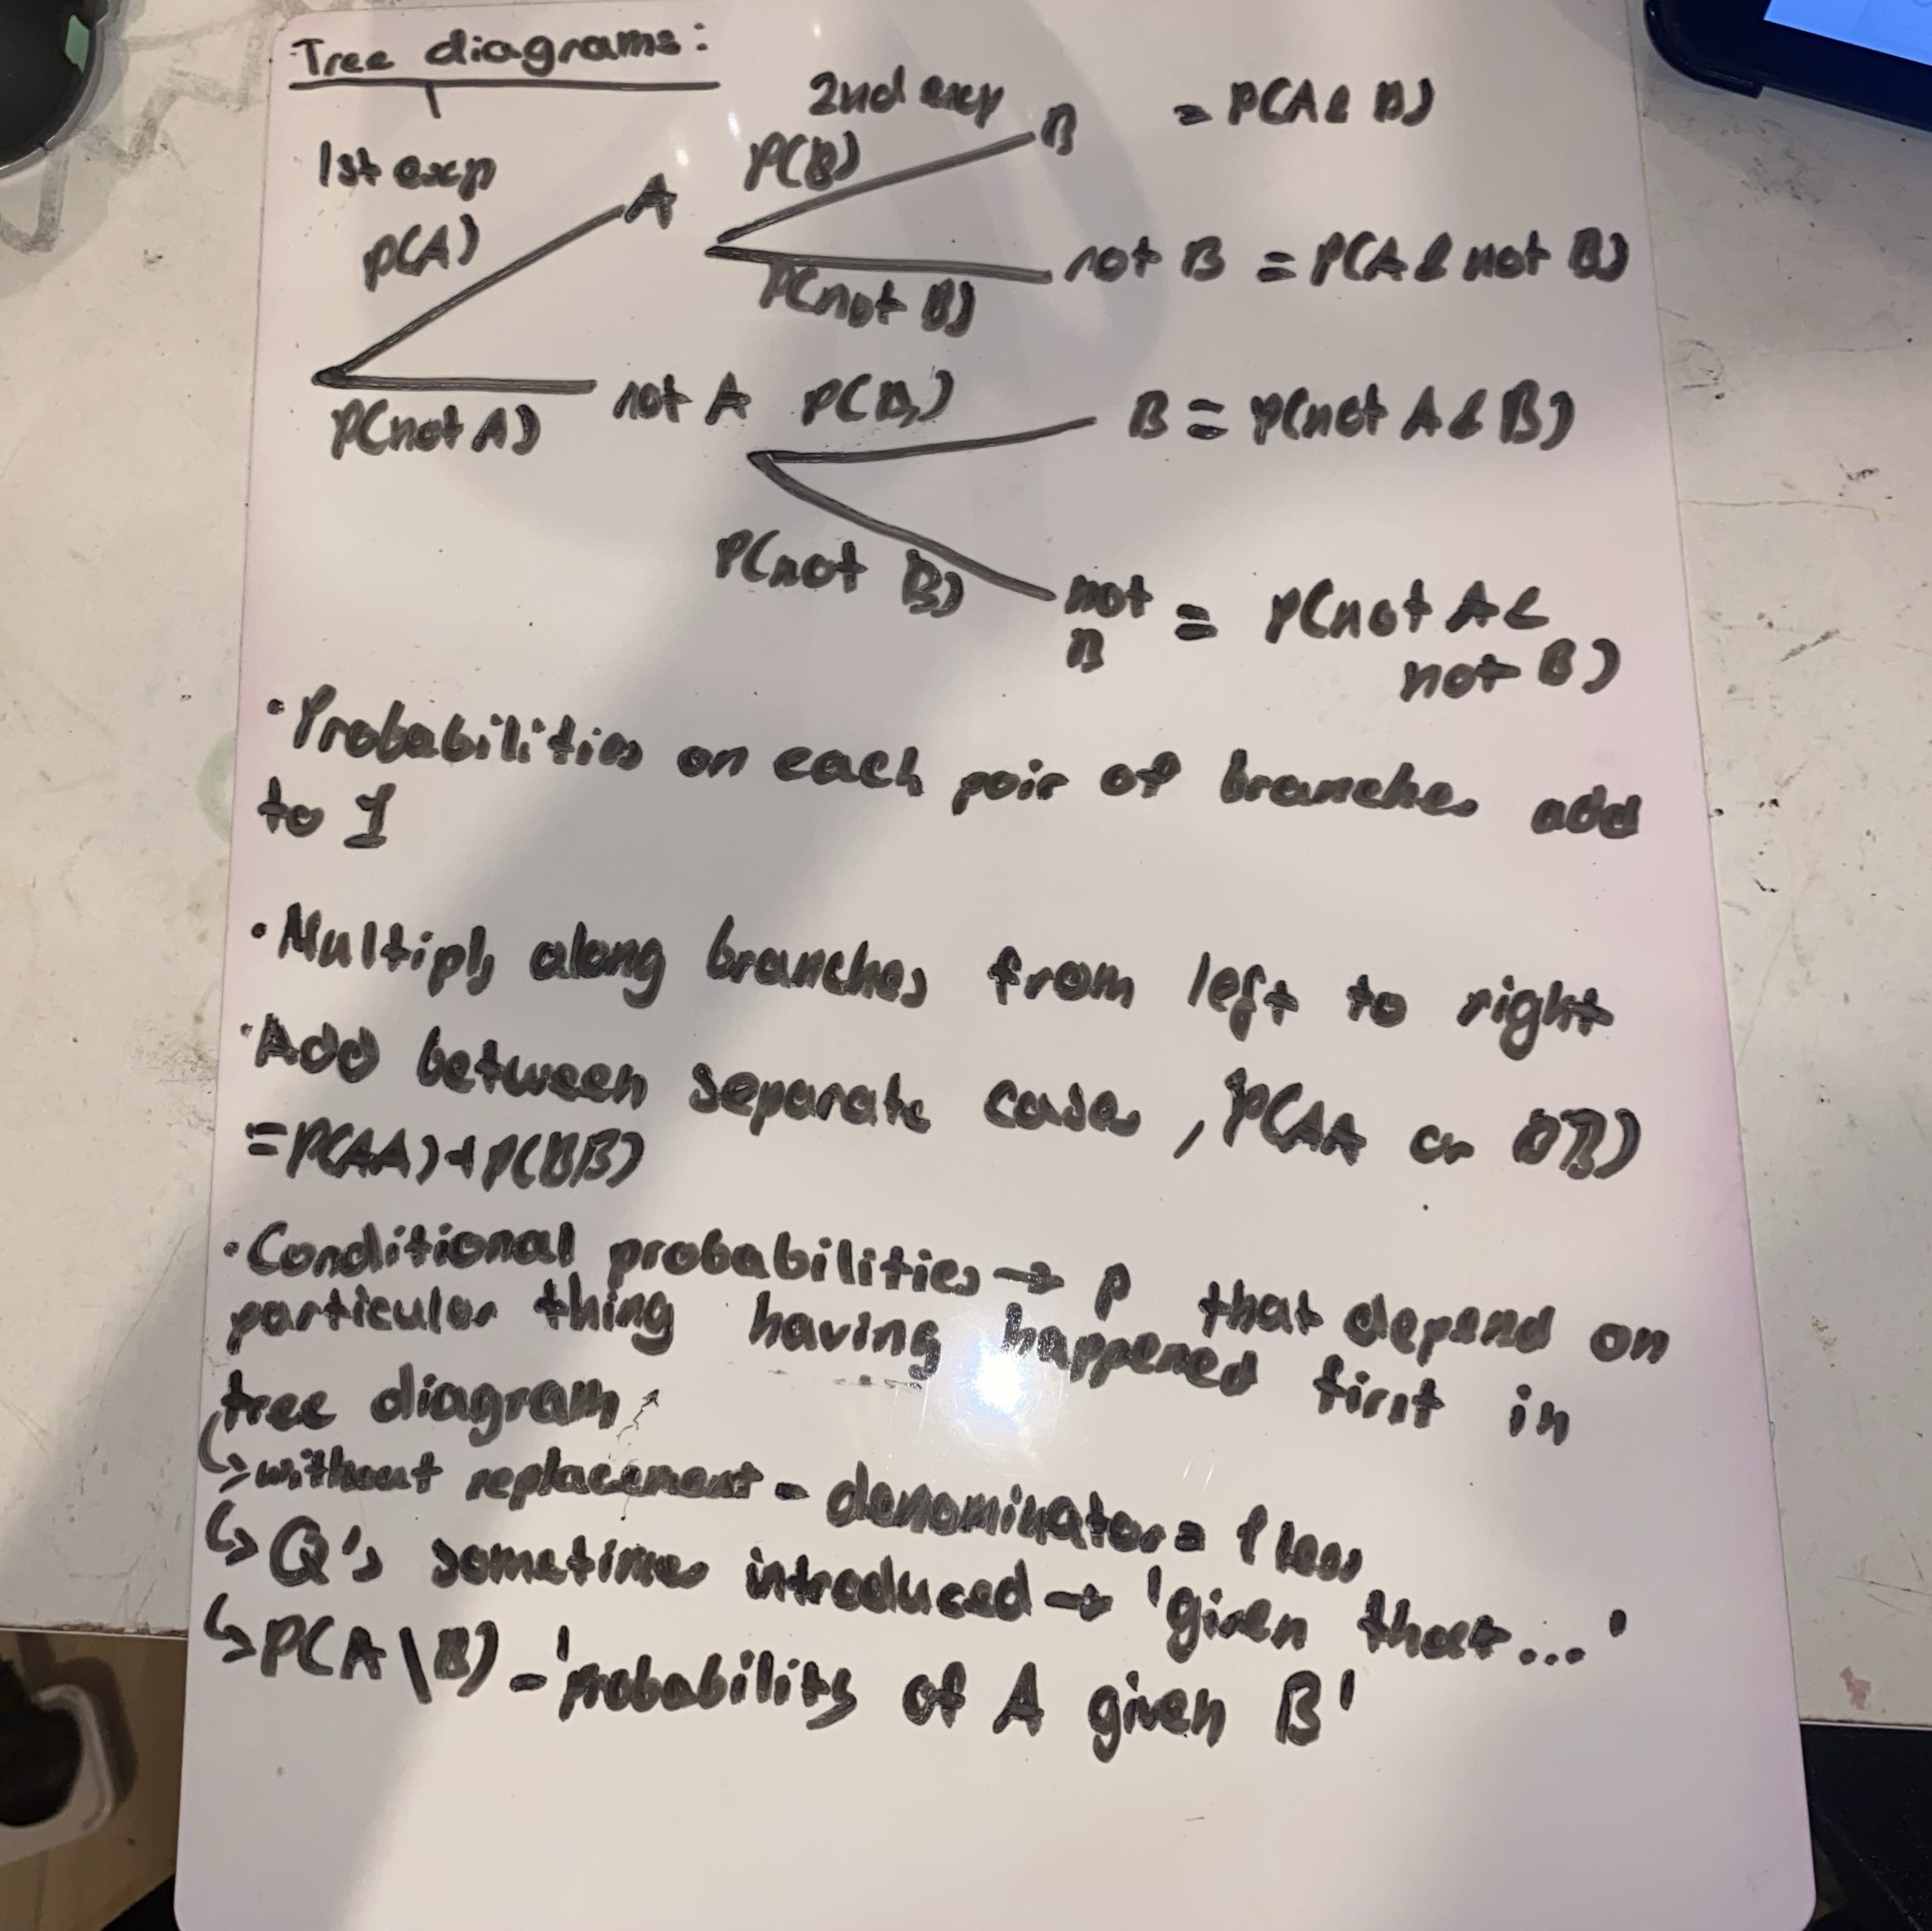 Tree diagrams:
1st exp
2nd exp
P(A)
A
P(B)
B
= P(A & B)
P(not B)
not B = P(A & not B)
P(not A)
not A
P(B)
B = P(not A & B)
P(not B)
not
B
= P(not A &
not B)
• Probabilities on each pair of branches add
to 1
• Multiply along branches from left to right
• Add between separate cases, P(AA or BB)
= P(AA) + P(BB)
• Conditional probabilities → P that depend on
particular thing having happened first in
tree diagram
↳ without replacement - denominator = 1 less
↳ Q's sometimes introduced → 'given that...'
↳ P(A\B) - 'probability of A given B'